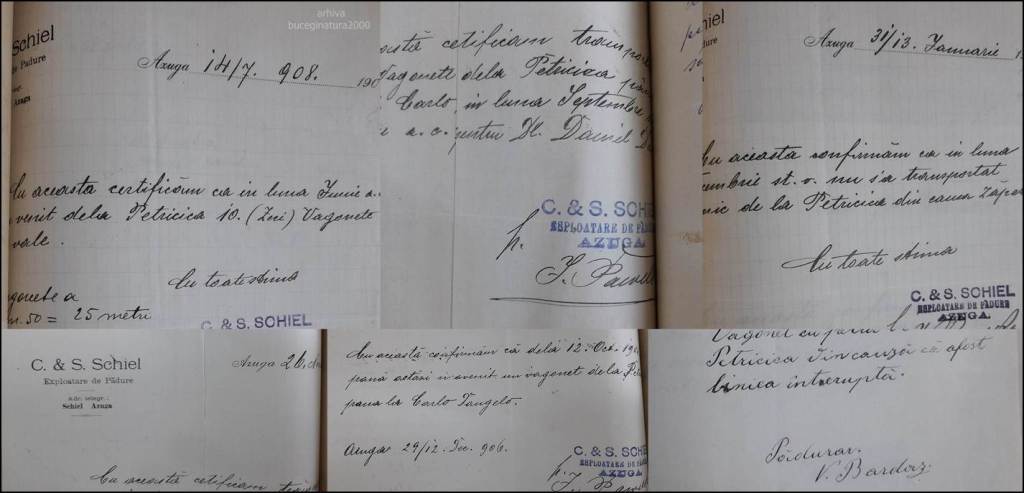 arhiva
buceginatura2000
Schiel
de Padure
Azuga
Azuga 14/7. 908. 190
Cu aceasta certificăm ca in luna Junie a.
venit dela Petricica 10. (Zeci) Vagonete
vale.
Cu toate stima
gonete a
50 = 25 metri
C. & S. SCHIEL
astă cetificam transpo
Vagonete dela Petricica pân
Carlo in luna Septembre
a. c. pentru Dl. Daniel D
C. & S. SCHIE
ESPLOATARE DE PĂDURE
AZUGA
p.
hiel
dure
Azuga 31/13. Januarie 1
Cu aceasta confirmăm ca in luna
cembrie st. v. nu s'a transportat
nic de la Petricica din causa Zăpe
Cu toate stima
C. & S. SCHIEL
ESPLOATARE DE PĂDURE
AZUGA.
C. & S. Schiel
Exploatare de Pădure
Adr. telegr.:
Schiel Azuga
Azuga 26.
Cu această certificam
Cu această confirmăm că dela 12. Oct. 190
pană astăzi a venit un vagonet de la Pe
pana la Carlo Tangelo.
Azuga 29/12. Dec. 906.
C. & S. SCHIE
ESPLOATARE DE PĂDU
AZUGA
Vagonet cu
Petricica din cauză că a fost
linica intreruptă.
Pădurar.
V. Bardaz